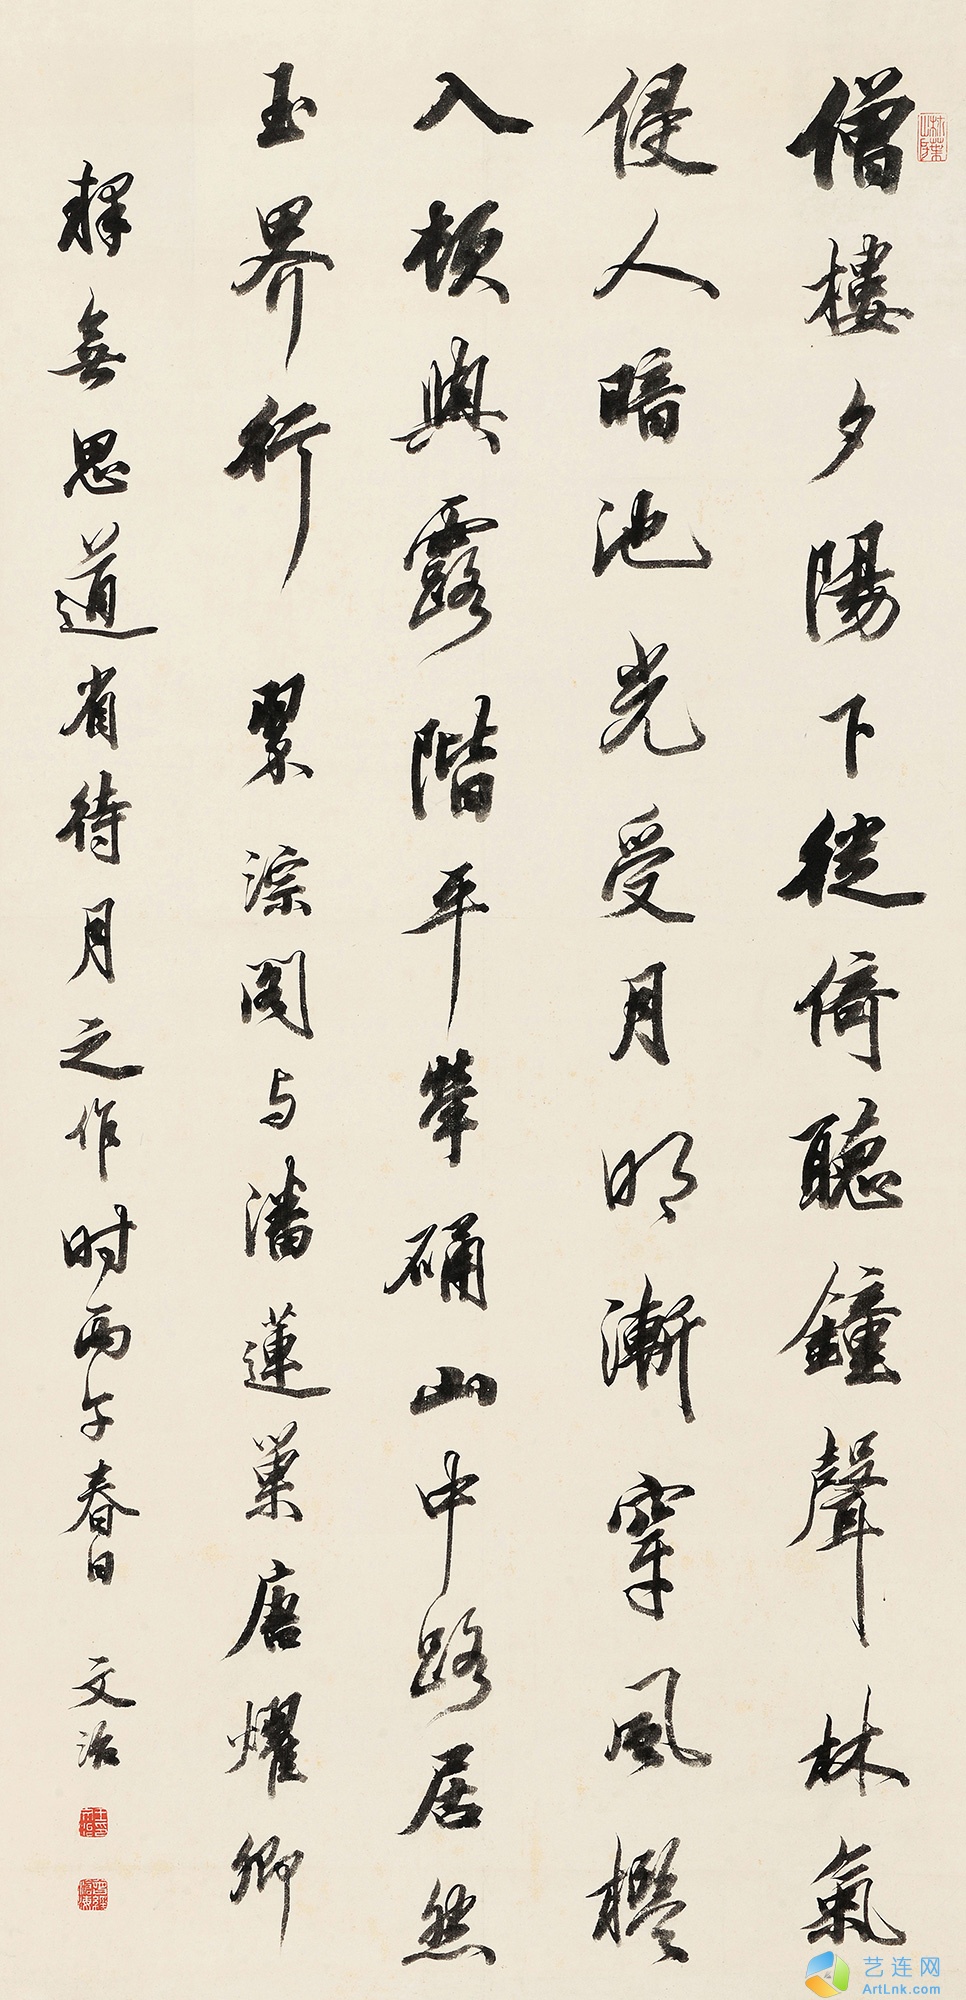 僧樓夕陽下徙倚聽鐘聲林氣
侵人暗池光受月明漸穿風檻
入頓與露階平犖确山中路居然
玉界行 翠淙閣与潘蓮巢唐耀卿
釋無思道省待月之作时丙午春日 文治
艺连网
ArtLnk.com